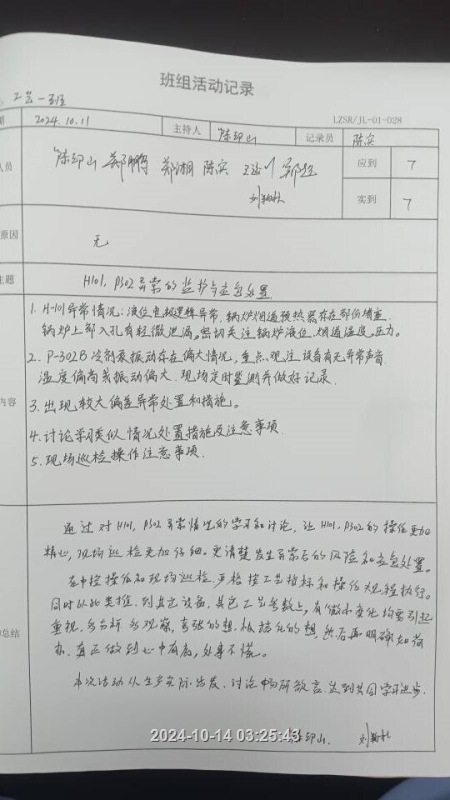 班组活动记录
工艺一班
期 2024.10.11 主持人 陈印山 记录员 陈宾
LZSR/JL-01-028
人员 陈印山 郑湘 陈宾
应到 7
实到 7
原因 无
主题 H101、P302异常的监护与应急处置
内容
1. H-101异常情况:液位电极逻辑异常,锅炉烟道预热器存在部份堵塞
锅炉上部人孔有轻微泄漏。密切关注锅炉液位、烟道温度、压力。
2. P-302B冷剂泵振动存在偏大情况,重点观注设备有无异常声音
温度偏高或振动偏大,现场定时监测并做好记录.
3. 出现较大偏差异常处置和措施。
4. 讨论学习类似情况处置措施及注意事项.
5. 现场巡检操作注意事项.
总结
通过对H101、P302异常情况的学习和讨论,让H101、P302的操作更加
精心,现场巡检更加仔细。更清楚发生异常后的风险和应急处置。
在中控操作和现场巡检,严格按工艺指标和操作规程执行。
同时以此类推,到其它设备,其它工艺参数上,有微小变化均需引起
重视,多分析多观察,
真正做到心中有底,处事不慌。
本次活动从生产实际出发,讨论中畅所欲言,达到共同学习进步.
陈印山
2024-10-14 03:25:43